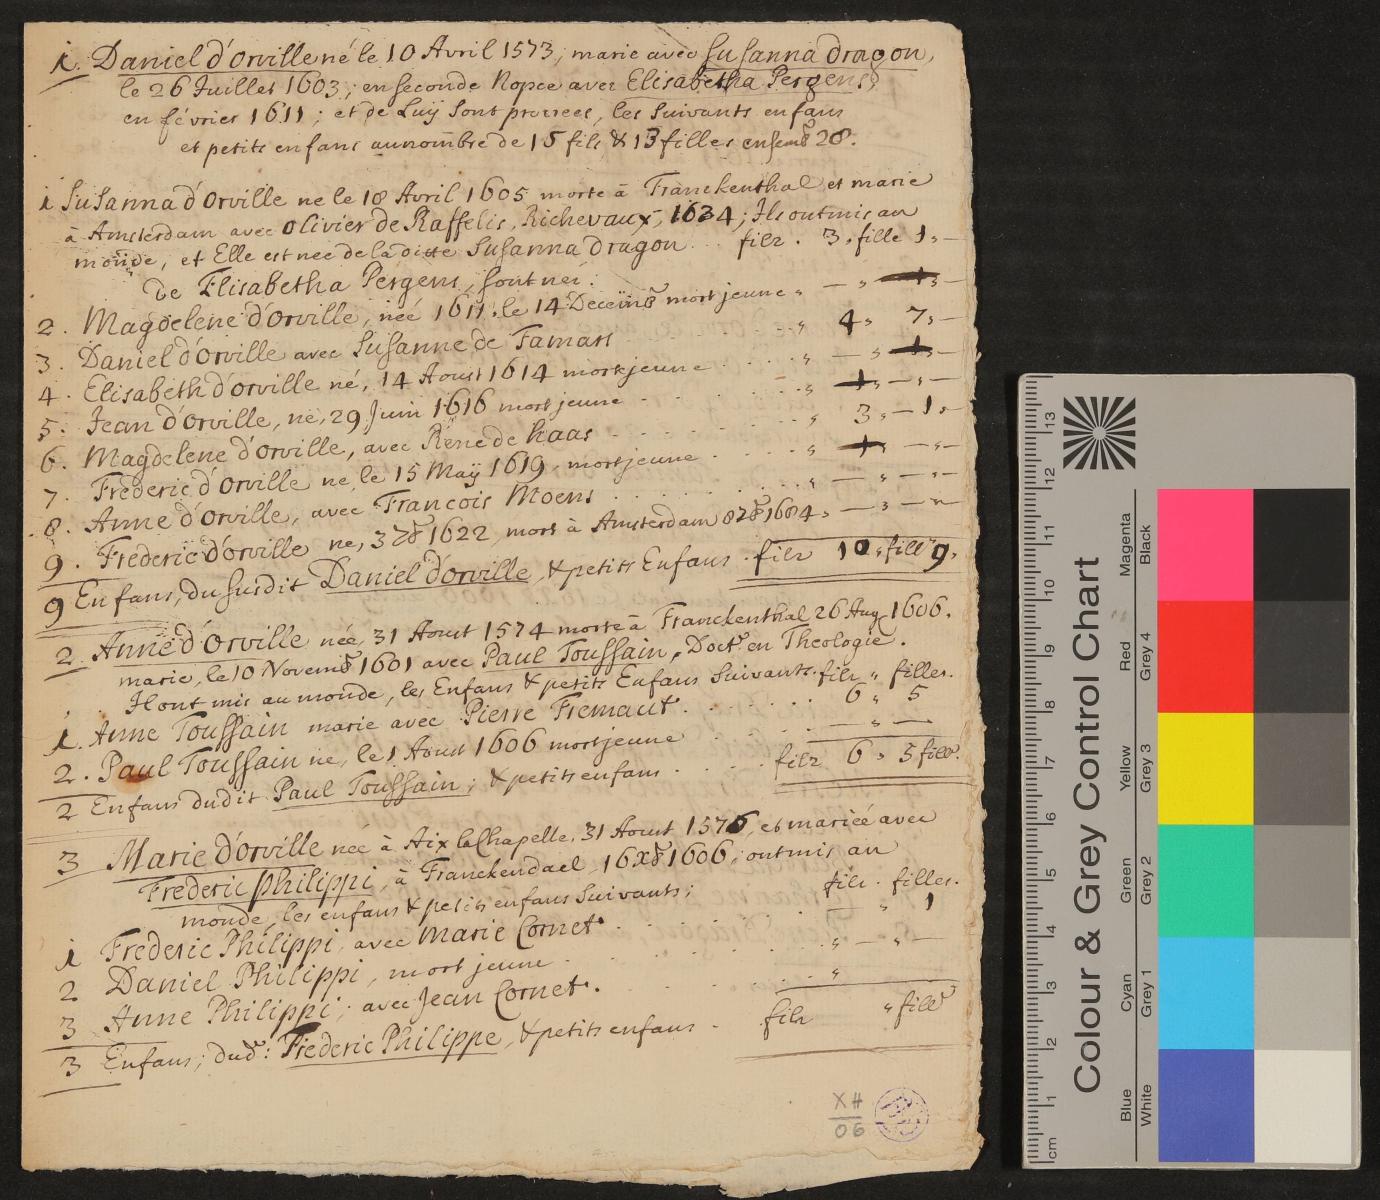 1. Daniel d'orville né le 10 Avril 1573, marie avec Susanna dragon,
le 26 Juillet 1603; en seconde Nopce avec Elisabetha Pergens,
en février 1611; et de Luÿ sont les suivants enfans
et petits enfans au nombre de 15 fils & 13 filles 28.
1 Susanna d'orville ne le 18 Avril 1605 morte à Franckenthal et marie
à Amsterdam avec olivier de Raffelis, Richevaux, 1634; Ils ont mis au
monde, et Elle est nee de la ditte Susanna dragon .. filz . 3, fille 1,
de Elisabetha Pergens, sont nés:
2. Magdelene d'orville, née 1611. le 14 mort jeune
3. Daniel d'orville avec Susanne de Famars 4, 7,
4. Elisabeth d'orville né, 14 Aoust 1614 mort jeune
5. Jean d'orville, ne, 29 Juin 1616 mort jeune
6. Magdelene d'orville, avec Rene de haas 3, 1,
7. Frederic d'orville ne le 15 Maÿ 1619, mort jeune
8. Anne d'orville, avec Francois Moens
9. Frederic d'orville ne, 3 1622, mort à Amsterdam 1684,
9 Enfans, du susdit Daniel d'orville, & petits Enfans . filz 10, fill 9,
2. Anne d'orville née 31 Aoust 1574 morte à Franckenthal 26 Aug 1606.
marie, le 10 1601 avec Paul Toussain, Doct. en Theologie.
Il ont mis au monde, les Enfans & petits Enfans Suivants. filz , filles.
1. Anne Toussain marie avec Pierre Fremaut. 6 , 5
2. Paul Toussain ne, le 1 Aoust 1606 mort jeune — , —
2 Enfans dudit Paul Toussain, & petits enfans . filz 6 , 5 fill.
3 Marie d'orville née à Aix la Chapelle, 31 Aoust 1576, et mariée avec
Frederic philippi, à Franckendael, 1606, ont mis au
monde, les enfans & petits enfans Suivants; filz . filles.
1 Frederic Philippi, avec Marie Cornet. — , 1
2 Daniel Philippi, mort jeune — , —
3 Anne Philippi, avec Jean Cornet.
3 Enfans, dud: Frederic Philippe, & petits enfans . filz , fill
XH
06
cm 1 2 3 4 5 6 7 8 9 10 11 12 13
Colour & Grey Control Chart
Blue Cyan Green Yellow Red Magenta
White Grey 1 Grey 2 Grey 3 Grey 4 Black